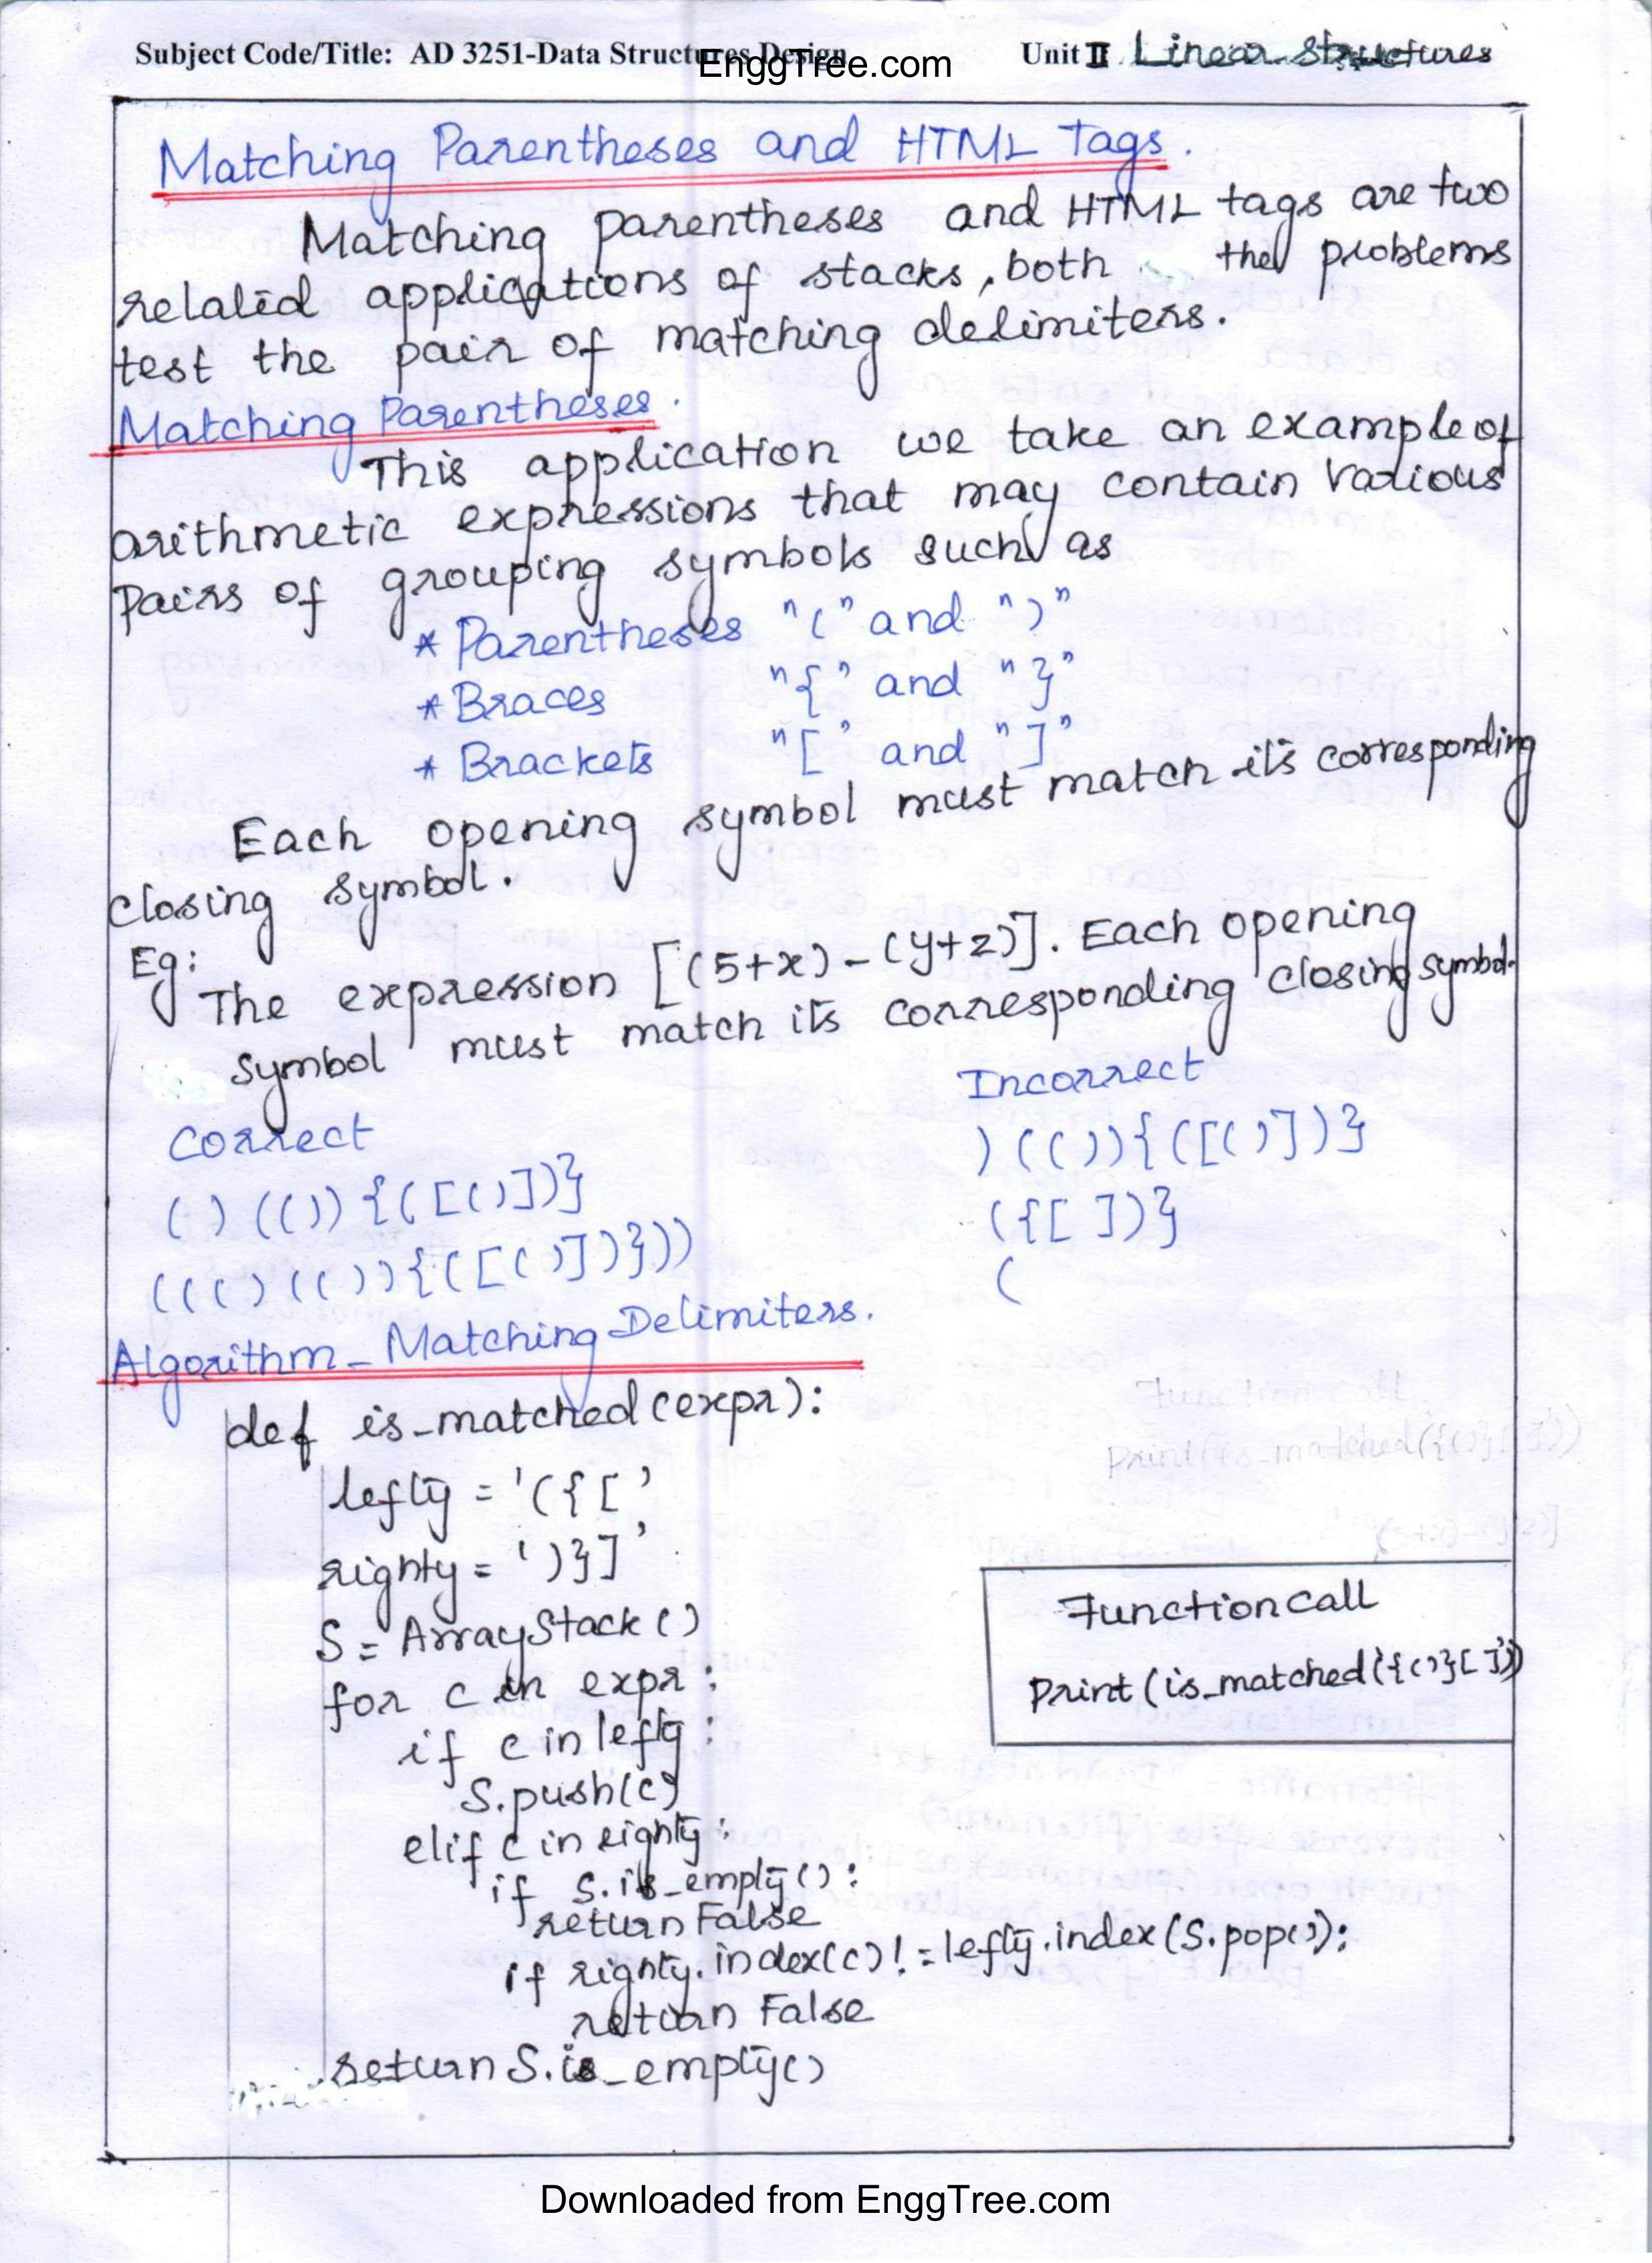 Subject Code/Title: AD 3251-Data Structures Design
EnggTree.com
Unit II Linear Structures
Matching Parentheses and HTML Tags.
Matching parentheses and HTML tags are two
related applications of stacks, both the problems
test the pair of matching delimiters.
Matching Parentheses.
This application we take an example of
arithmetic expressions that may contain various
Pairs of grouping symbols such as
* Parentheses "(" and ")"
* Braces "{" and "}"
* Brackets "[" and "]"
Each opening symbol must match its corresponding
closing symbol.
Eg:
The expression [(5+x)-(y+z)]. Each opening
symbol must match its corresponding closing symbol.
Correct
( ) (( )) {( [ ( ) ] )}
( ( ( ) ( ( ) ) { ( [ ( ) ] ) } ) )
Incorrect
) (( )) {( [ ( ) ] )}
({[ ])}
(
Algorithm - Matching Delimiters.
def is_matched(expr):
lefty = '({['
righty = ')}]'
S = ArrayStack()
for c in expr:
if c in lefty:
S.push(c)
elif c in righty:
if S.is_empty():
return False
if righty.index(c) != lefty.index(S.pop()):
return False
return S.is_empty()
Function call
Print (is_matched('{()}[]'))
Downloaded from EnggTree.com